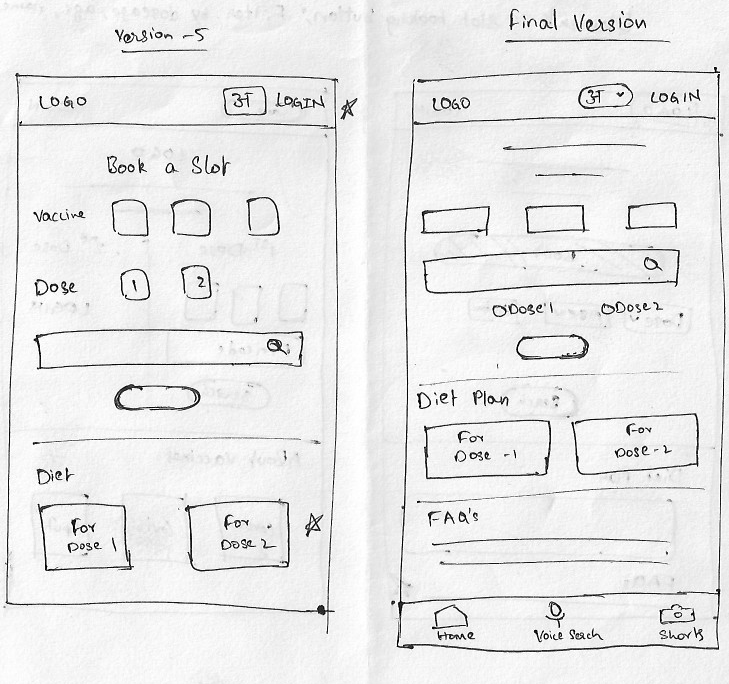 Version -5
LOGO अ LOGIN
Book a Slot
Vaccine
Dose 1 2
Diet
For Dose 1
For Dose 2
Final Version
LOGO अ LOGIN
Dose 1 Dose 2
Diet Plan
For Dose -1
For Dose -2
FAQ's
Home Voice Serch Shorts